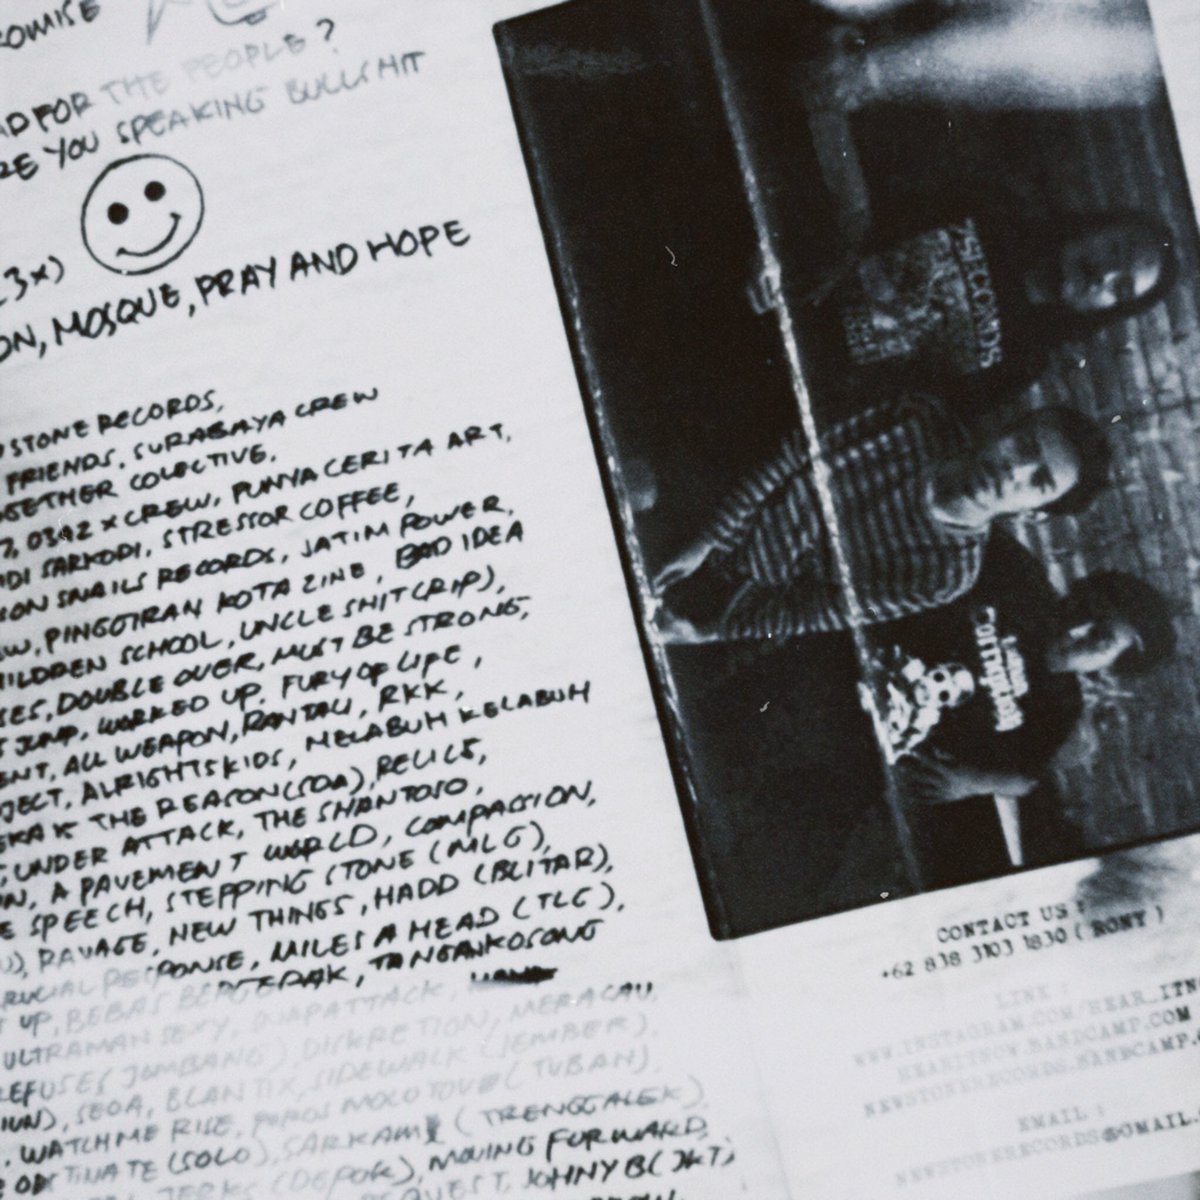 ROMISE
AD FOR THE PEOPLE?
RE YOU SPEAKING BULLSHIT
(3x)
ON, MOSQUE, PRAY AND HOPE
STONE RECORDS,
FRIENDS, SURABAYA CREW
GETHER COLECTIVE,
7, 0342 X CREW, PUNYA CERITA ART,
DI SARKODI, STRESSOR COFFEE,
SON SNAILS RECORDS, JATIM POWER,
W, PINGGIRAN KOTA ZINE, BAD IDEA
HILDREN SCHOOL, UNCLE SHIT (RIP),
SES, DOUBLE OVER, MUST BE STRONG,
JUMP, WORKED UP, FURY OF LIFE,
ENT, ALL WEAPON, RANTAU, RKK,
JECT, ALRIGHTSKIDS, MELABUH KELABUH
ERAK THE REASON (SDA), RELICS,
UNDER ATTACK, THE SHANTOSO,
N, A PAVEMENT WORLD, COMPASSION,
E SPEECH, STEPPING STONE (MLG),
), RAVAGE, NEW THINGS, HADD (BLITAR),
RUCIAL RESPONSE, MILES A HEAD (TLG),
T UP, BEBAS TANGANKOSONG
ULTRAMAN SEXY, INAPATTACK,
REFUSES JOMBANG), DISKRETION, MERACAU,
IUN), SEOA, BLANTIX, SIDEWALK (JEMBER),
WATCH ME RISE, POROS MOLOTOV (TUBAN),
TINATE (SOLO), SARKAM (TRENGGALEK),
JERKS (DEPOK), MOVING FORWARD,
QUEST, JOHNY B (JKT),
25SECONDS
CONTACT US :
+62 838 3103 1830 ( RONY )
LINK :
WWW.INSTAGRAM.COM/HEAR_ITN
HEARITNOW.BANDCAMP.COM
NEWSTONERECORDS.BANDCAMP.
EMAIL :
NEWSTONERECORDS@GMAIL.